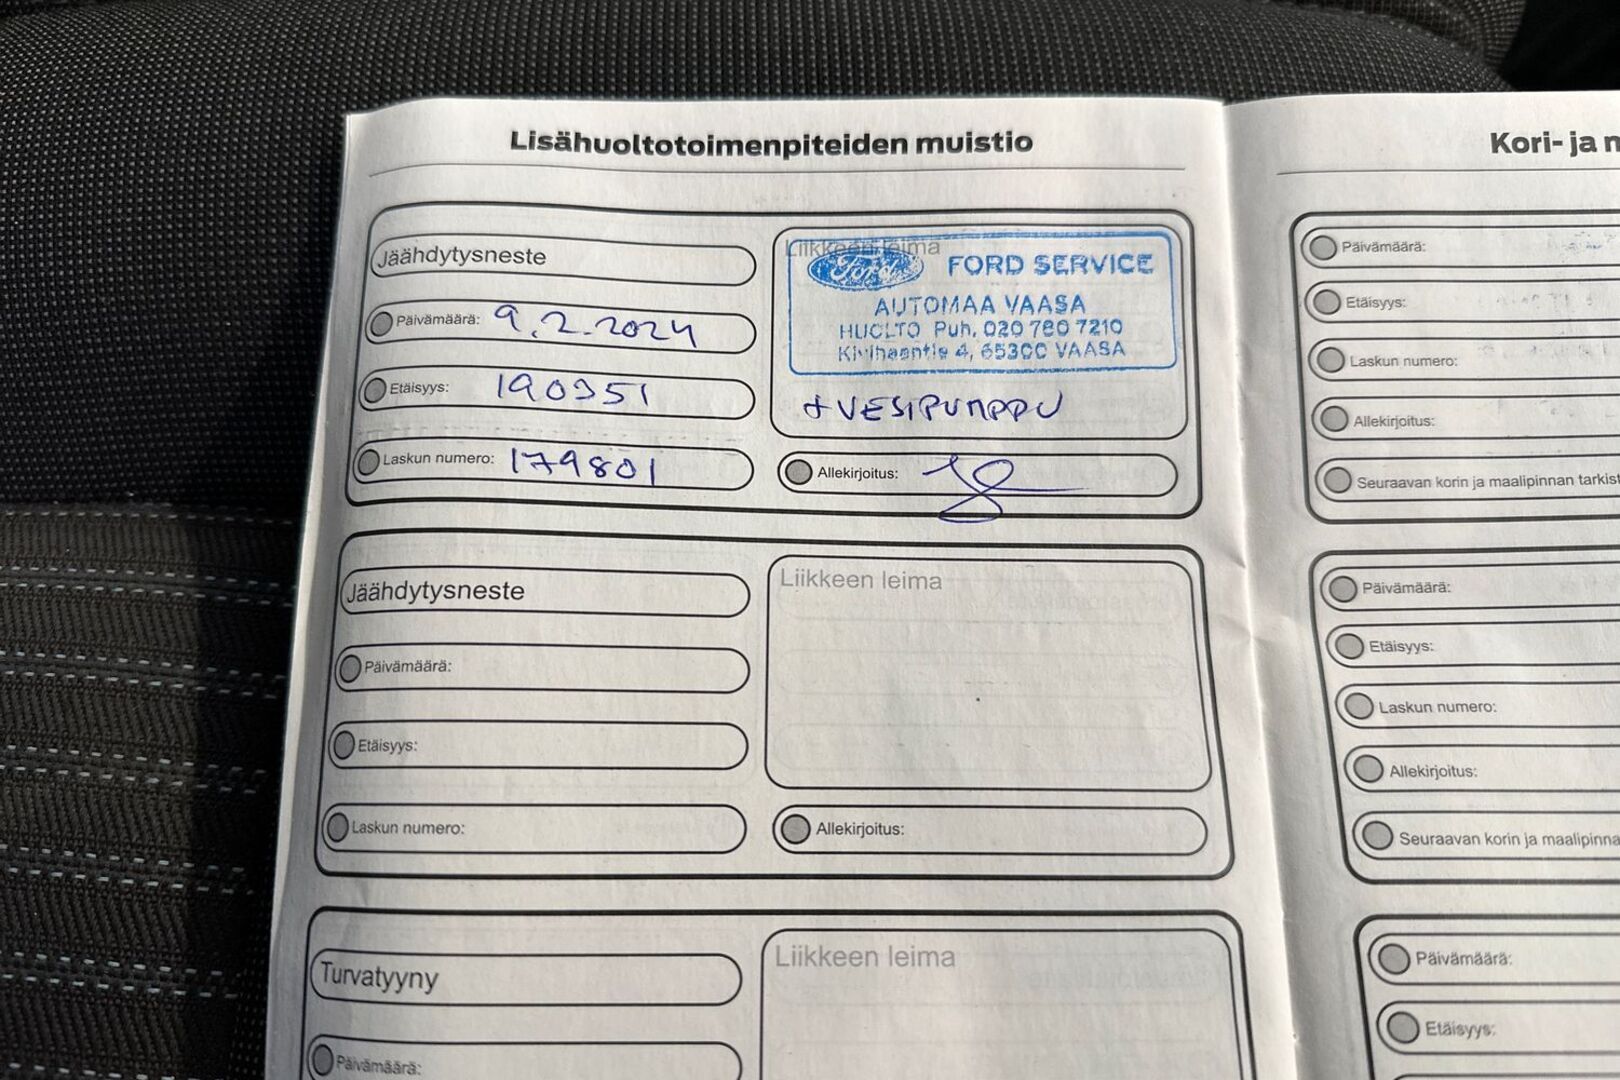 Lisähuoltotoimenpiteiden muistio
Jäähdytysneste
Päivämäärä: 9.2.2024
Etäisyys: 190351
Laskun numero: 179801
Liikkeen leima
Ford FORD SERVICE
AUTOMAA VAASA
HUOLTO Puh. 020 780 7210
Kivihaantie 4, 65300 VAASA
+ VESIPUMPPU
Allekirjoitus:
Jäähdytysneste
Päivämäärä:
Etäisyys:
Laskun numero:
Liikkeen leima
Allekirjoitus:
Turvatyyny
Päivämäärä:
Liikkeen leima
Kori- ja m
Päivämäärä:
Etäisyys:
Laskun numero:
Allekirjoitus:
Seuraavan korin ja maalipinnan tarkist
Päivämäärä:
Etäisyys:
Laskun numero:
Allekirjoitus:
Seuraavan korin ja maalipinna
Päivämäärä:
Etäisyys: